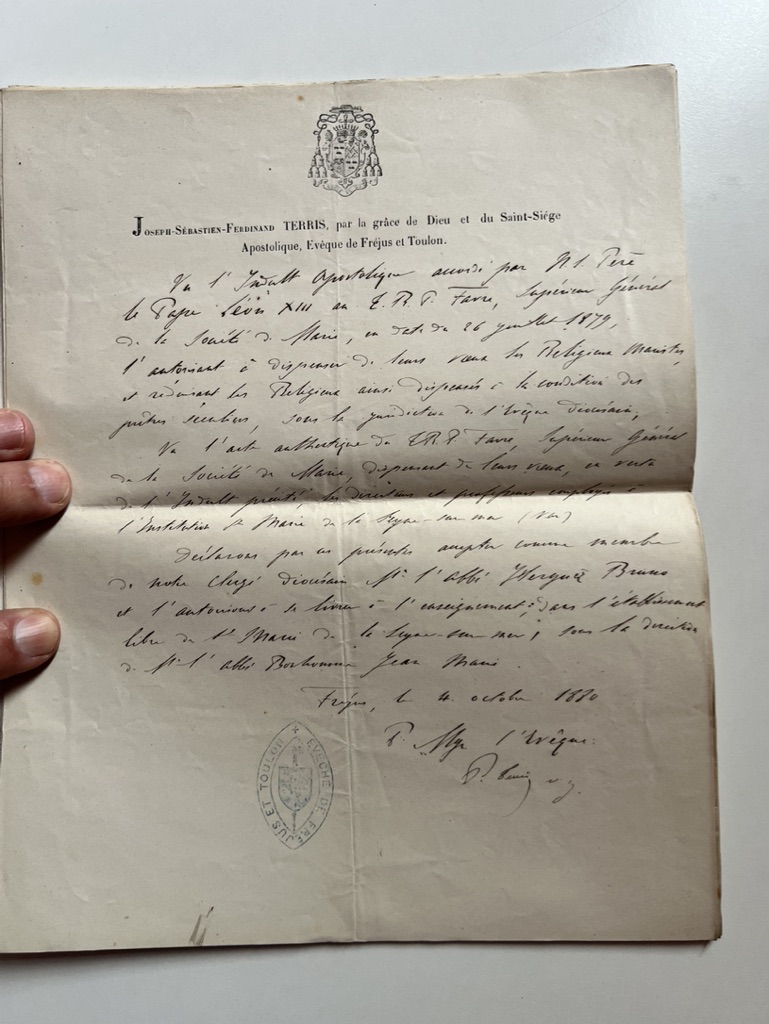 Joseph-Sébastien-Ferdinand TERRIS, par la grâce de Dieu et du Saint-Siége
Apostolique, Evêque de Fréjus et Toulon.
Vu l'Indult Apostolique accordé par N. S. Père
le Pape Léon XIII au T. R. P. Favre, Supérieur Général
de la Société de Marie, en date du 26 juillet 1879,
l'autorisant à dispenser de leurs vœux les Religieux Maristes,
et réduisant les Religieux ainsi dispensés à la condition des
prêtres séculiers, sous la juridiction de l'Evêque diocésain,
Vu l'acte authentique du T. R. P. Favre, Supérieur Général
de la Société de Marie, dispensant de leurs vœux, en vertu
de l'Indult précité, les directeurs et professeurs employés à
l'Institution Ste Marie de la Seyne-sur-mer (Var)
Déclarons par ces présentes accepter comme membre
de notre Clergé diocésain Mr. l'abbé Bruno
et l'autorisons à se livrer à l'enseignement, dans l'établissement
libre de Ste Marie de la Seyne-sur-mer, sous la direction
de Mr. l'abbé Jean Marie.
Fréjus, le 4 octobre 1880
P. Mgr l'Evêque.
v. g.
EVÊCHÉ DE FRÉJUS ET TOULON